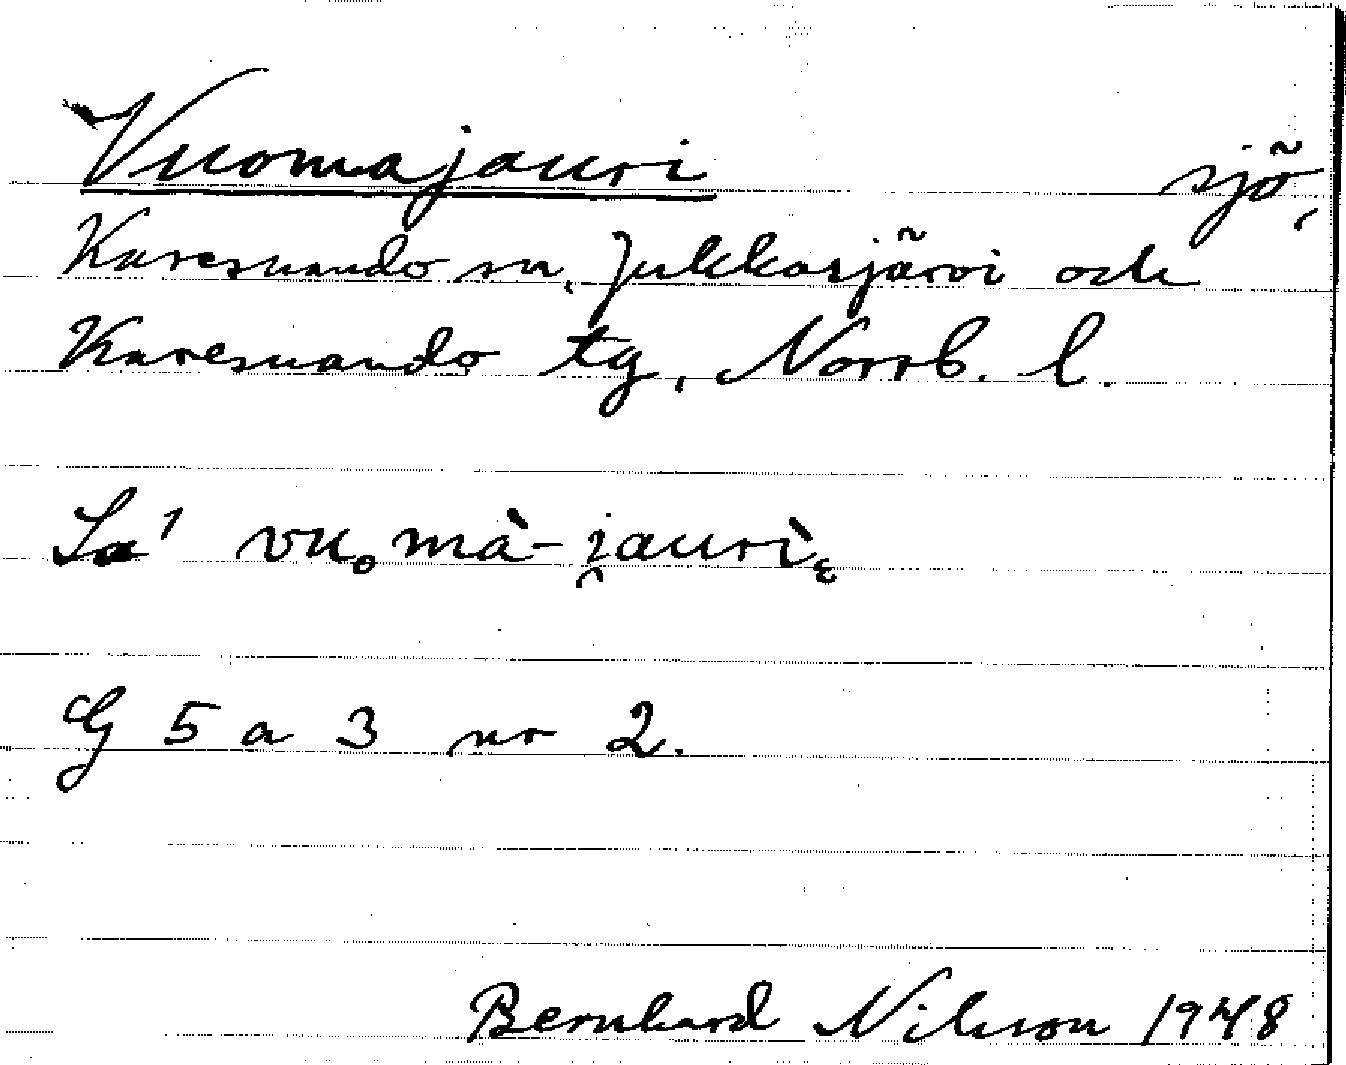 Vuomajauri sjö,
Karesuando sn, Jukkasjärvi och
Karesuando tg, Norrb. l.
vu̥omà-jauri̯
G 5 a 3 nr 2.
Bernhard Nilsson 1948